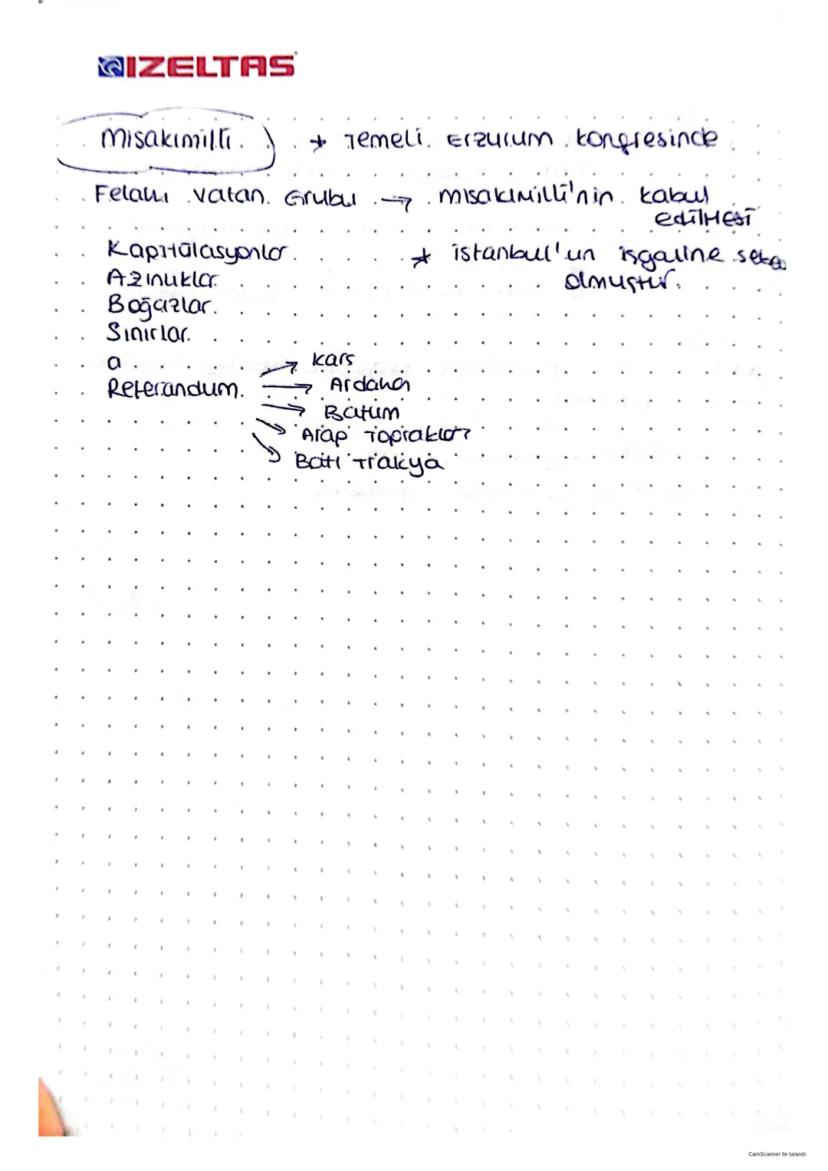 IZELTAS
Misakımilli * Temeli Erzurum kongresinde
Felahı vatan Grubu → misakımilli'nin kabul
edilmesi
Kapitülasyonlar * istanbul'un işgaline sebep
Azınlıklar olmuştur.
Boğazlar
Sınırlar
a
Referandum → Kars
→ Ardahan
→ Batum
→ Arap Toprakları
→ Batı Trakya
CamScanner ile tarandı